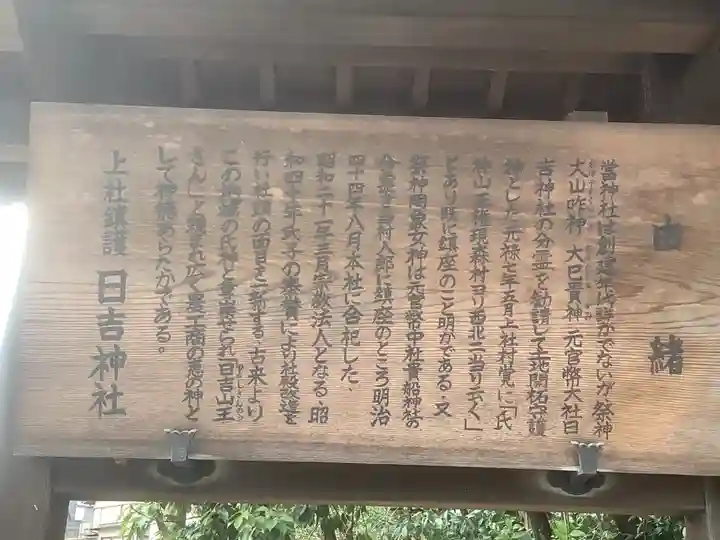 由緒
當神社は創建年代詳かでないが祭神
大山咋神 大巳貴神 元官幣大社日
吉神社の分霊を勧請して土地開拓守護
神とした 元禄七年五月上社村覚に「氏
神山王権現森村ヨリ西北ニ当リ云く」
とあり既に鎮座のこと明かである・又
祭神岡象女神は元官幣中社貴船神社の
分霊で当村八郎に鎮座のところ明治
四十四年八月本社に合祀した、
昭和二十一年三月宗教法人となる・昭
和四十年氏子の寄賛により社殿改造を
行い社頭の面目を一新する・古来より
この地域の氏神と尊崇せられ日吉山王
さん」と親まれ広く農工商の恵の神と
して神徳あらたかである。
上社鎮護 日吉神社